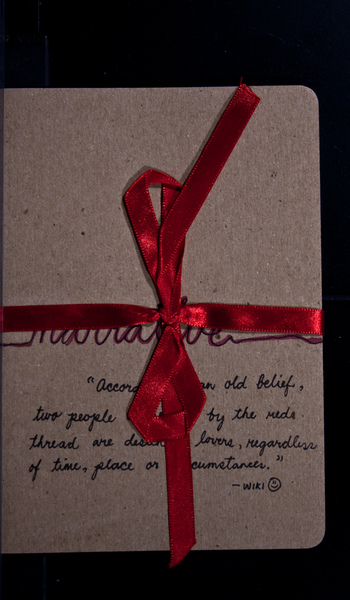 narrative
"Accor an old belief,
two people by the reds
thread are desti lovers, regardless
of time, place or cumstances."
- WIKI ☺